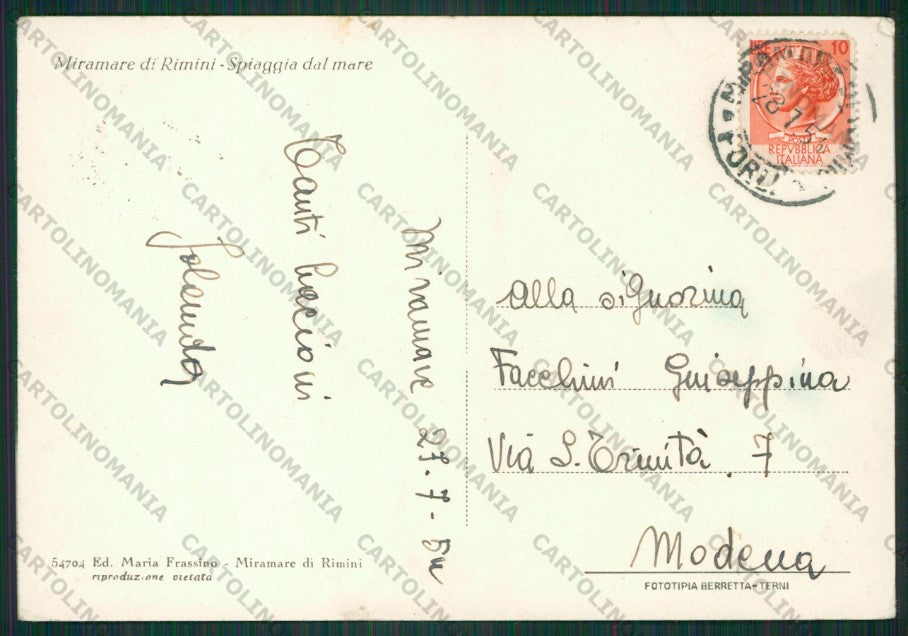 Miramare di Rimini - Spiaggia dal mare
10
REPVBBLICA
ITALIANA
28.7.5
Miramare 27.7-54
Tanti baccioni
Jolanda
alla signorina
Facchini Giuseppina
Via S. Trinità. 7
Modena
54704 Ed. Maria Frassino - Miramare di Rimini
riproduzione vietata
FOTOTIPIA BERRETTA-TERNI
CARTOLINOMANIA